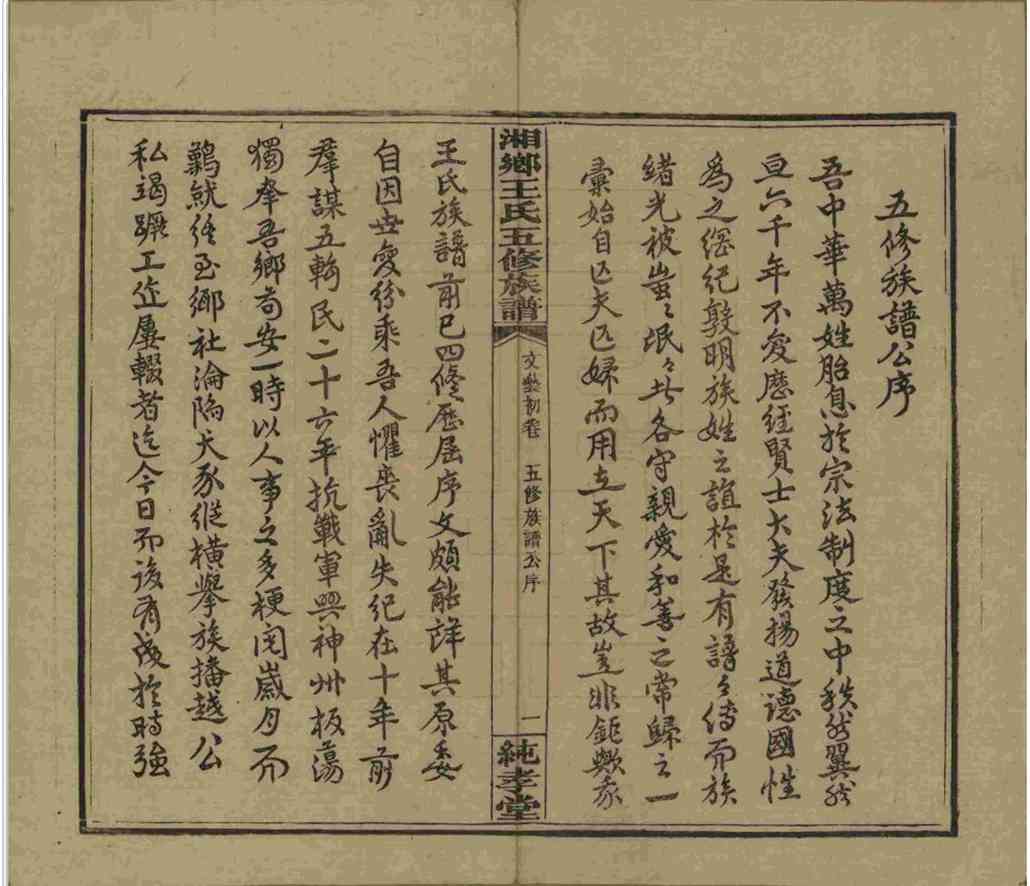 五修族譜公序
吾中華萬姓胎息於宗法制度之中秩然翼然
亘六千年不變歷經賢士大夫發揚道德國性
為之綱紀敦明族姓之誼於是有譜々傳而族
緒光被蚩々氓々皆各守親愛和善之常歸之一
彙始自匹夫匹婦而用立天下其故豈非鉅歟我
湘鄉王氏五修族譜
文藝初卷 五修族譜公序
一
純孝堂
王氏族譜前已四修歷屆序文頗能詳其原委
自因世變紛乘吾人懼喪亂失紀在十年前
羣謀五輯民二十六年抗戰軍興神州板蕩
獨幸吾鄉苟安一時以人事之多梗閱歲月而
鷯就維至鄉社淪陷犬豕縱橫舉族播越公
私竭蹶工作屢輟者迄今日而後有成於時強